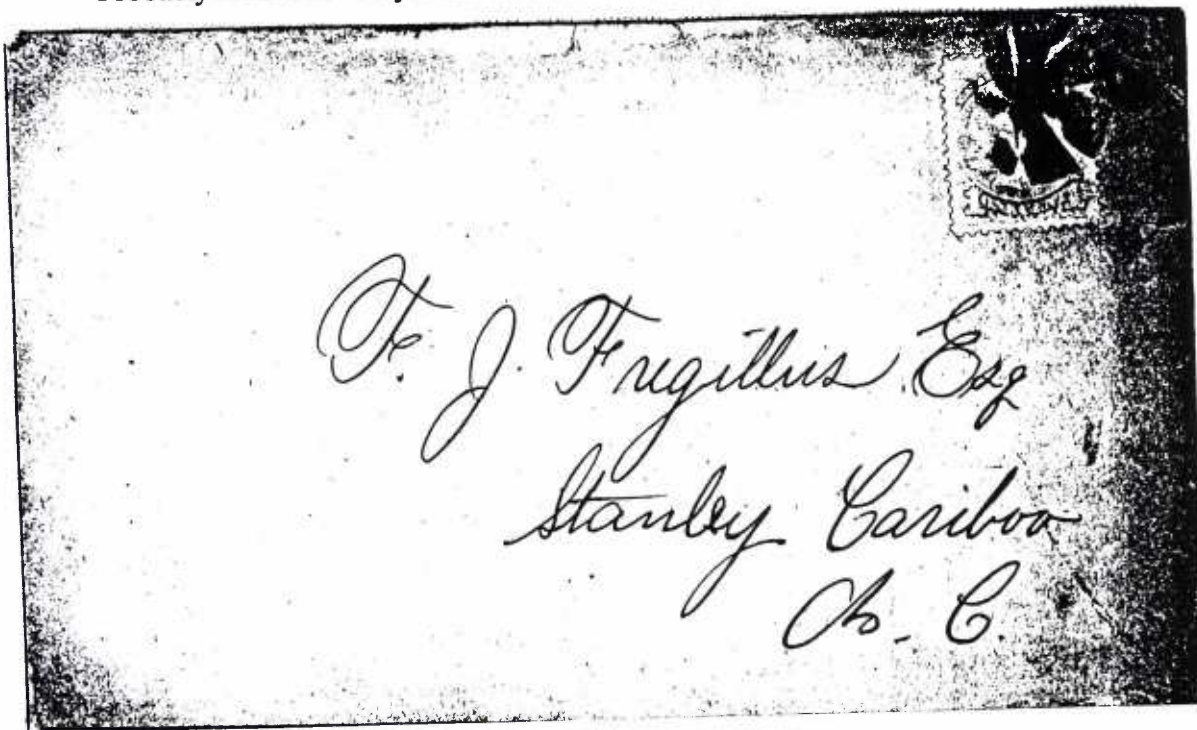 F. J. Fregillus Esq
Stanley Cariboo
B. C.